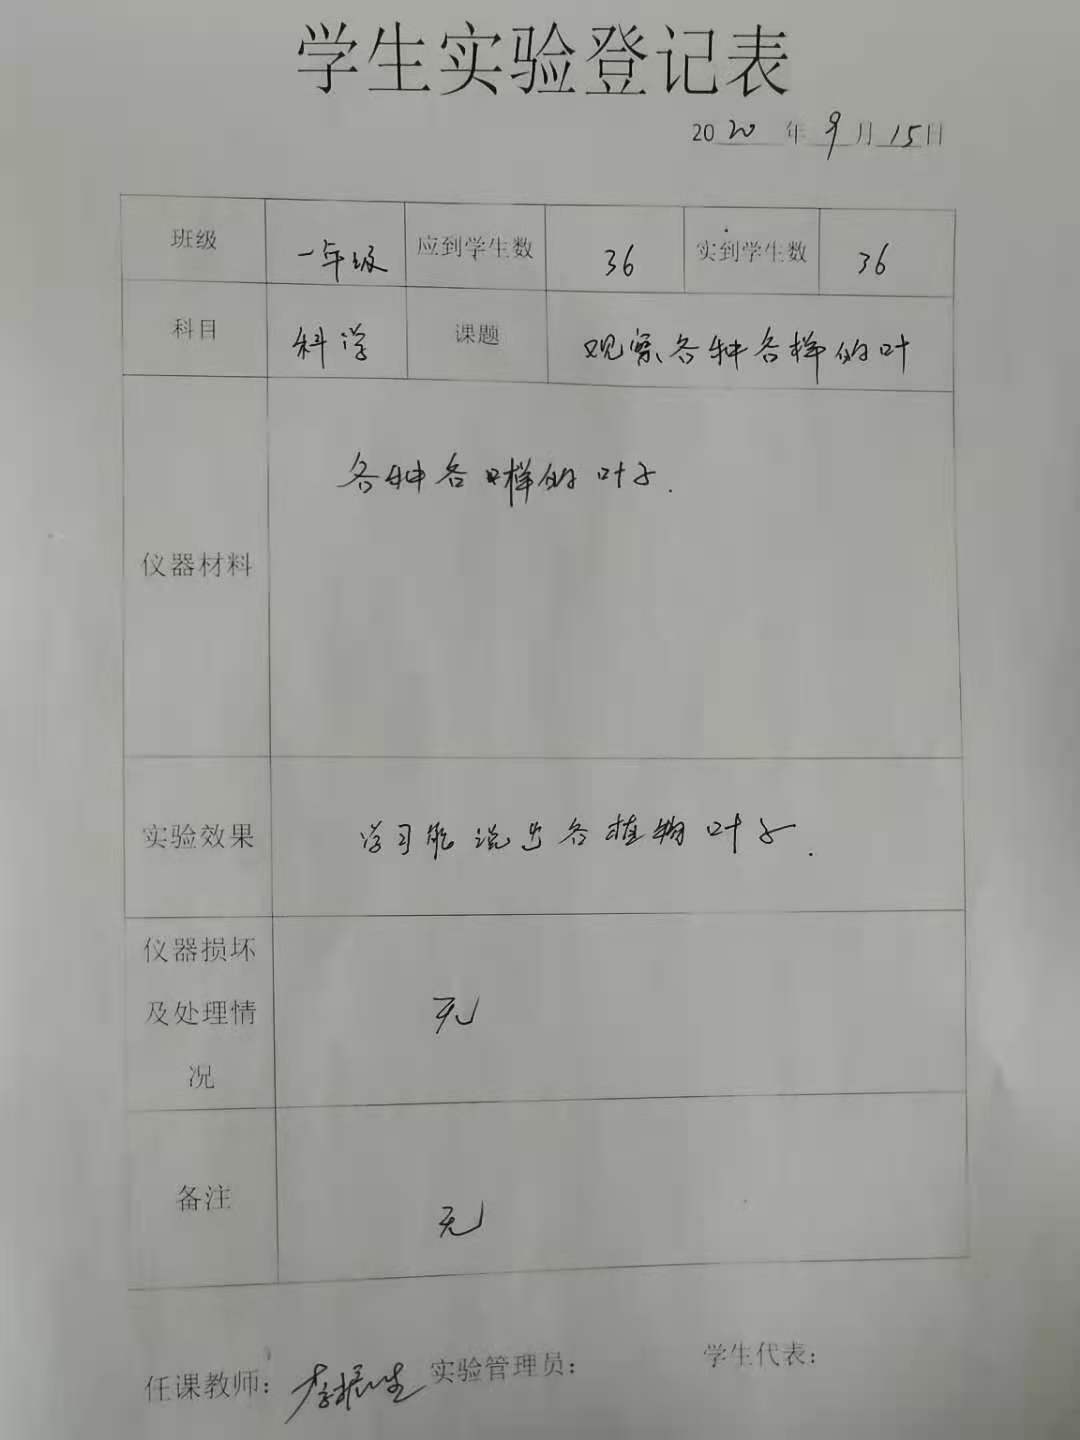 学生实验登记表
2020年9月15日
班级 一年级 应到学生数 36 实到学生数 36
科目 科学 课题 观察各种各样的叶
仪器材料 各种各样的叶子.
实验效果 学习能说出各植物叶子.
仪器损坏
及处理情
况
无
备注 无
任课教师: 李振生 实验管理员: 学生代表: